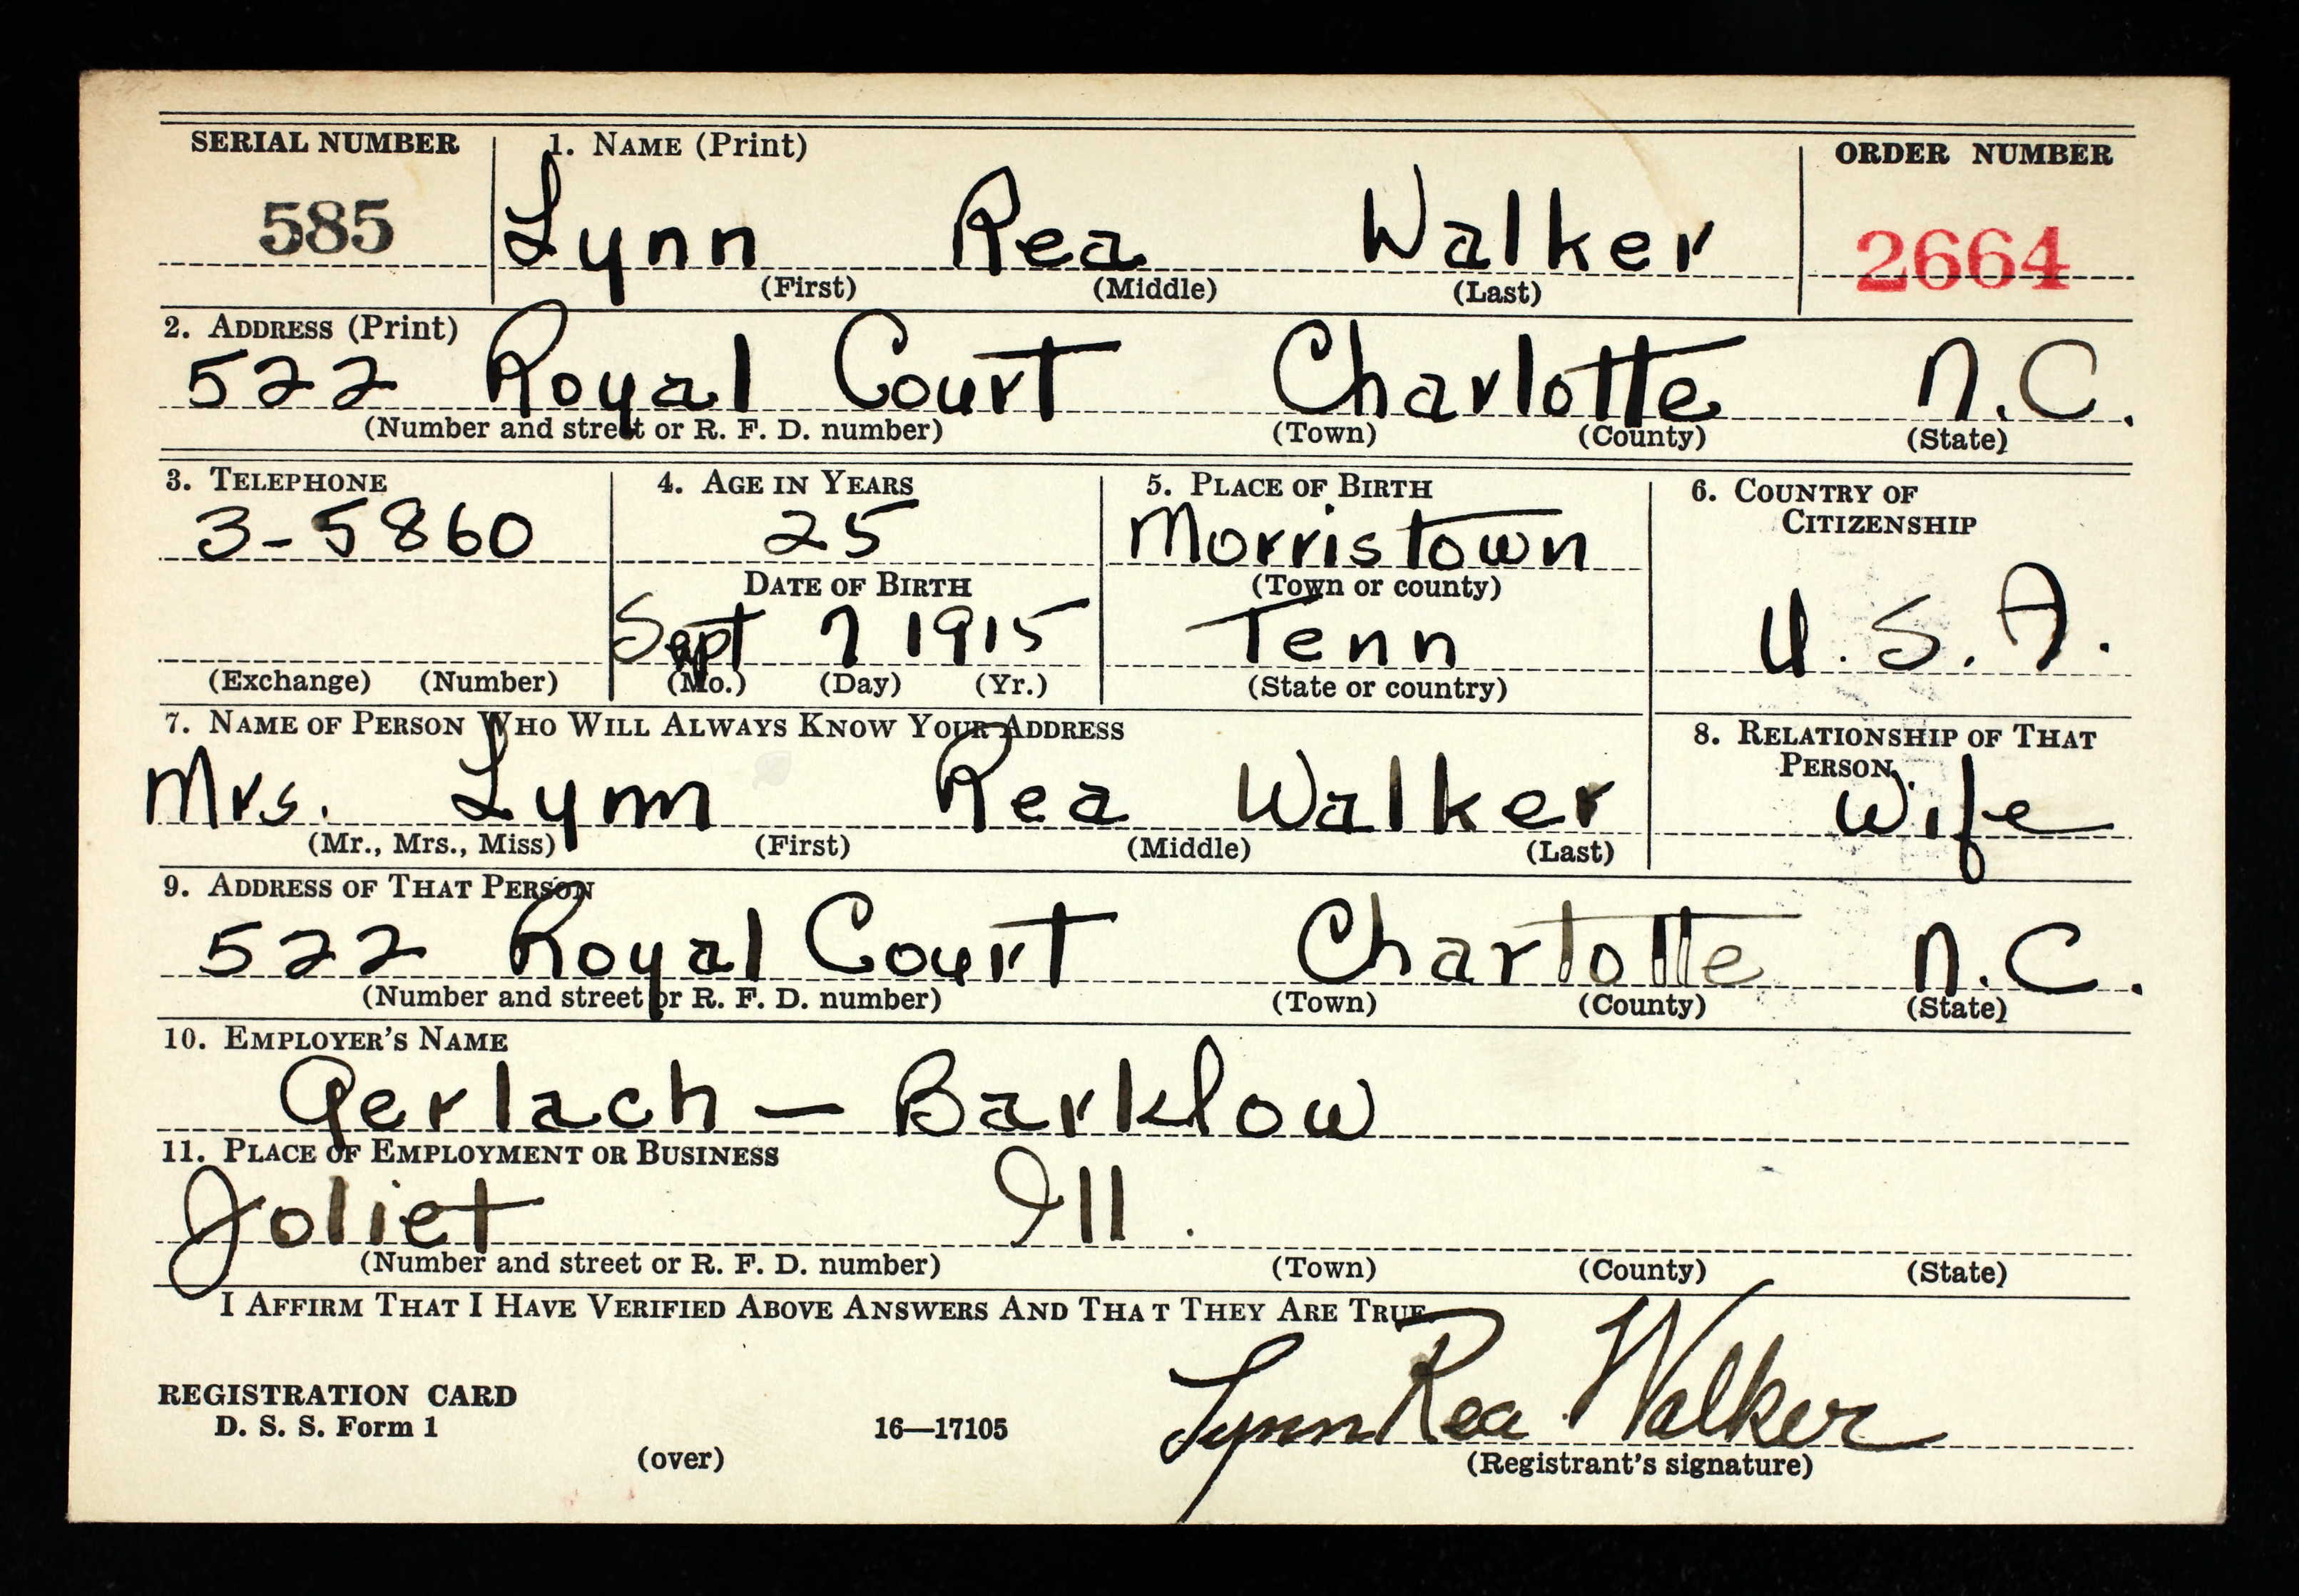 SERIAL NUMBER 1. NAME (Print) ORDER NUMBER
585 Lynn Rea Walker 2664
(First) (Middle) (Last)
2. ADDRESS (Print)
522 Royal Court Charlotte N.C.
(Number and street or R. F. D. number) (Town) (County) (State)
3. TELEPHONE 4. AGE IN YEARS 5. PLACE OF BIRTH 6. COUNTRY OF
CITIZENSHIP
3-5860 25 Morristown
DATE OF BIRTH (Town or county)
Sept 7 1915 Tenn U.S.A.
(Exchange) (Number) (Mo.) (Day) (Yr.) (State or country)
7. NAME OF PERSON WHO WILL ALWAYS KNOW YOUR ADDRESS 8. RELATIONSHIP OF THAT
PERSON
Mrs. Lynn Rea Walker Wife
(Mr., Mrs., Miss) (First) (Middle) (Last)
9. ADDRESS OF THAT PERSON
522 Royal Court Charlotte N.C.
(Number and street or R. F. D. number) (Town) (County) (State)
10. EMPLOYER'S NAME
Gerlach — Barklow
11. PLACE OF EMPLOYMENT OR BUSINESS
Joliet Ill.
(Number and street or R. F. D. number) (Town) (County) (State)
I AFFIRM THAT I HAVE VERIFIED ABOVE ANSWERS AND THAT THEY ARE TRUE.
REGISTRATION CARD
D. S. S. Form 1 16—17105 Lynn Rea Walker
(over) (Registrant's signature)